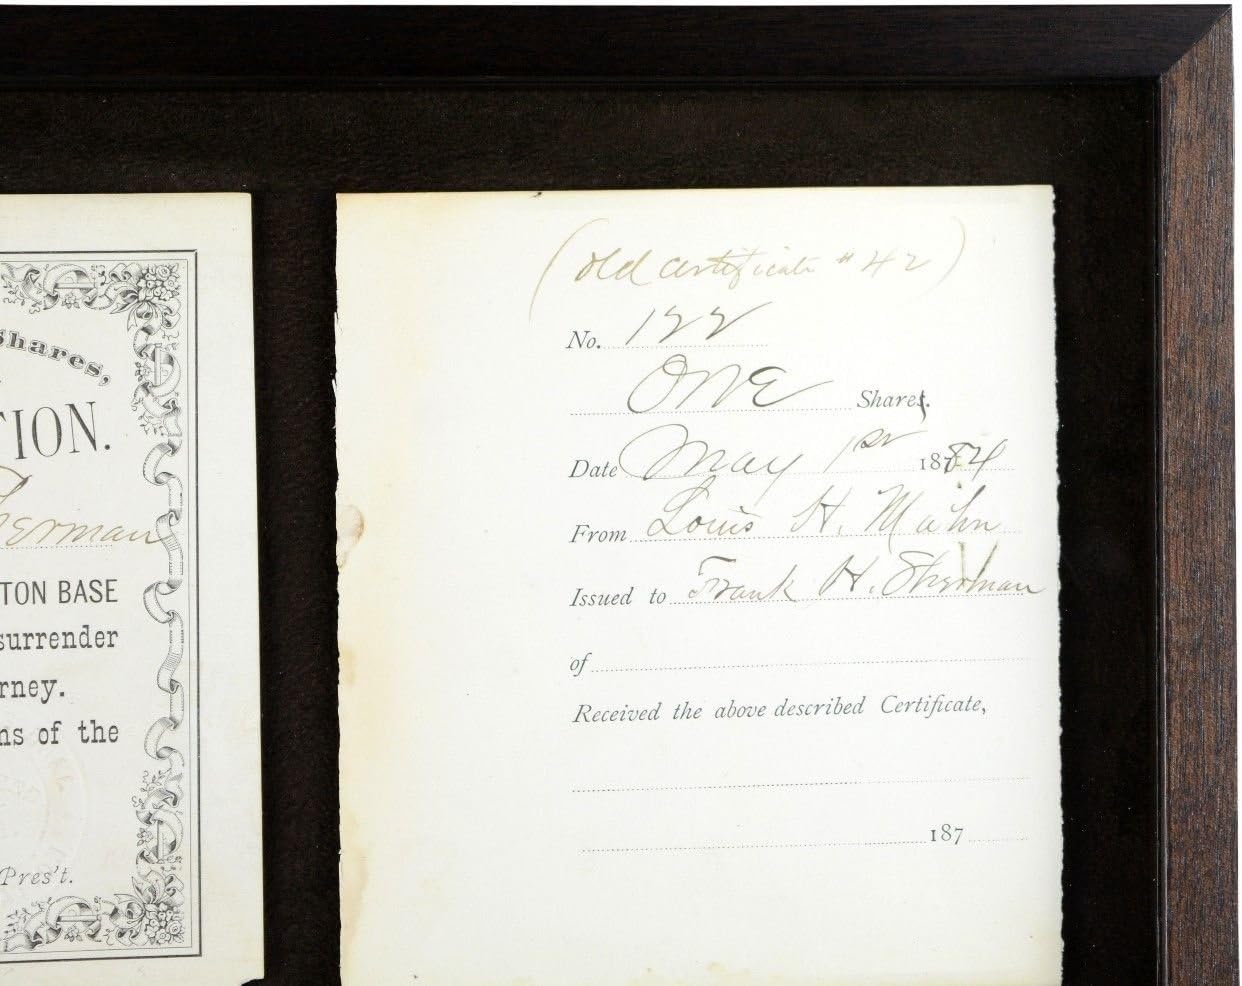 Shares,
TION.
herman
TON BASE
surrender
rney.
ns of the
Pres't.
(Old Certificate #42)
No. 122
One Shares.
Date May 1st 1884
From Louis H. Mahn
Issued to Frank H. Sherman
of
Received the above described Certificate,
187